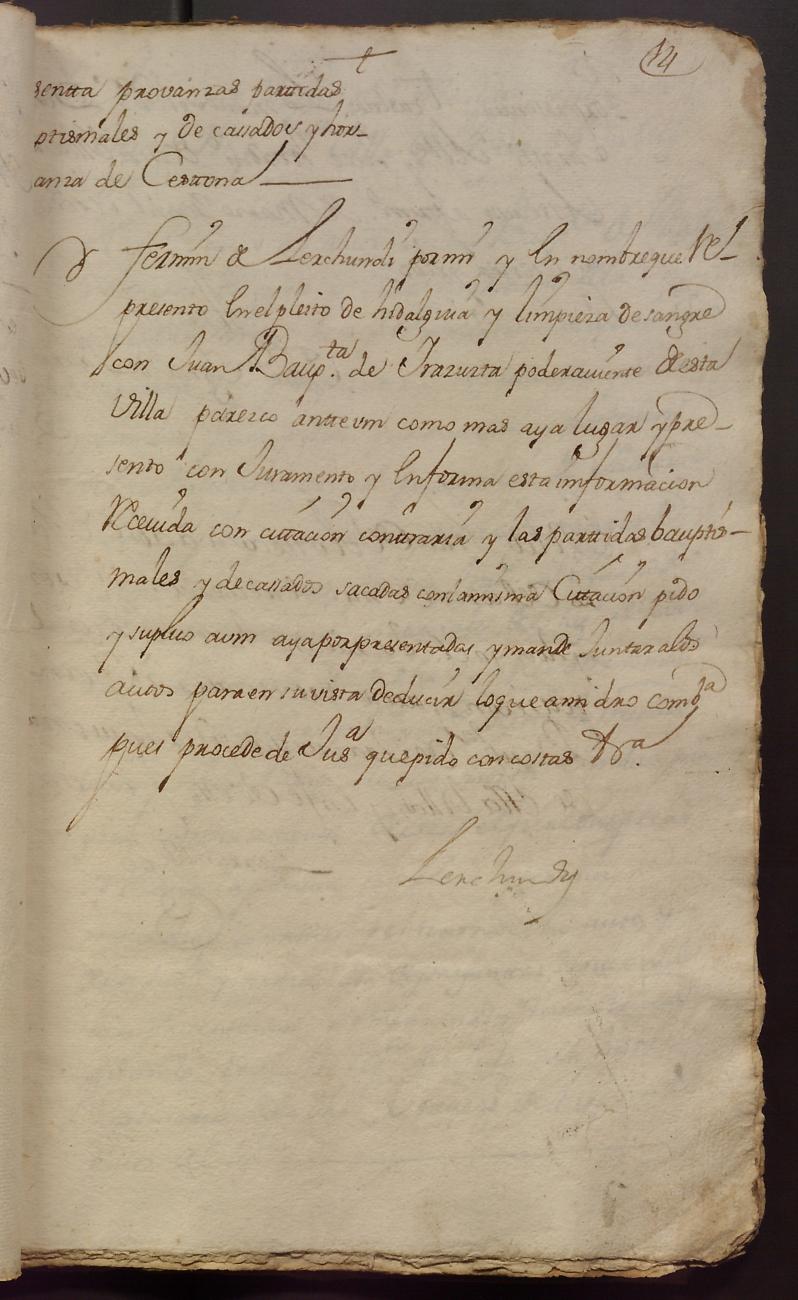 14
sentta provanzas parttidas
ptismales y de cassados y hor-
anza de Cestona
fermin de Lerchundi por mi y En nombre que Re-
presento En el pleito de hidalguia y limpieza de sangre
con Juan Baup.ta de Irazusta poderaviente de esta
Villa parezco antte vm como mas aya lugar y pre-
sento con Juramento y En forma esta informacion
Recevida con cittacion conttraria y las parttidas bauptis-
males y de cassados sacadas con la misma Cittacion pido
y suplico a vm aya por presentadas y mande Juntar a los
autos para en su vista deducir lo que a mi dro comb.ga
pues procede de Jus.a que pido con costas &.a
Lerchundy